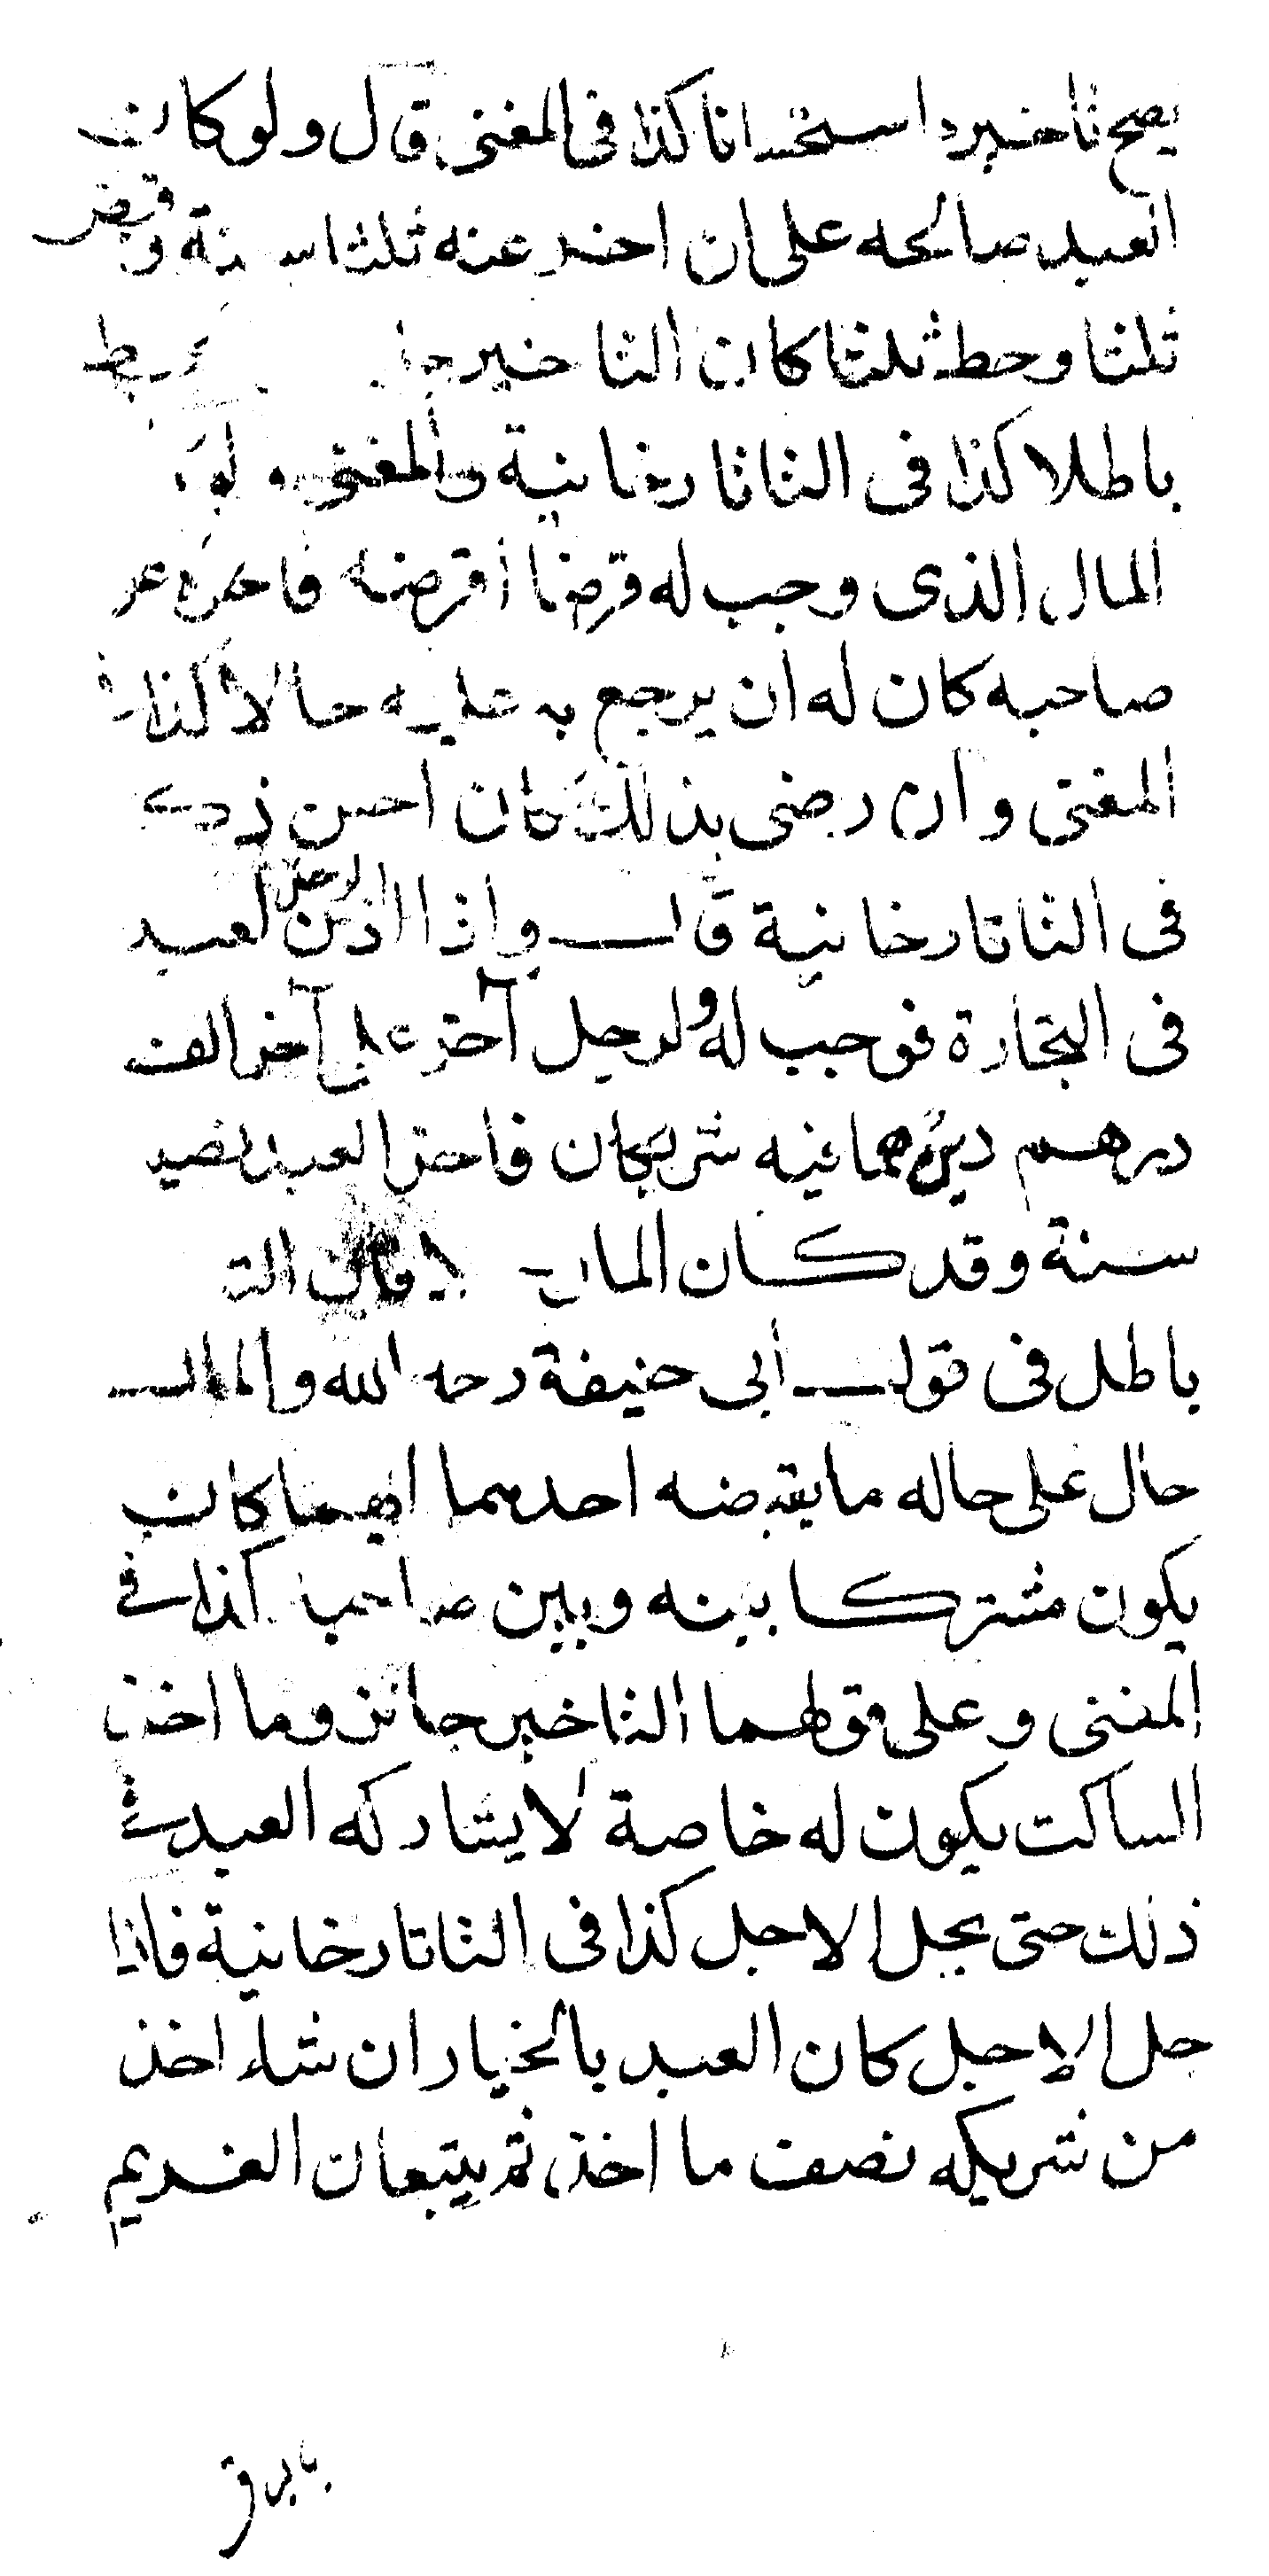 يصح تاخيره استحسانا كذا فى المغنى قال ولو كان
العبد صالحه على ان اخر عنه ثلثا سنة وقبض
ثلثا وحط ثلثا كان التاخير
باطلا كذا فى التاتارخانية والمغنى ولو
المال الذى وجب له قرضا اقرضه فاخره عن
صاحبه كان له ان يرجع به عليه حالا كذا فى
المغنى وان رضى بذلك كان احسن
فى التاتارخانية قال واذا اذن الرجل لعبده
فى التجارة فوجب له ولرجل آخر على آخر الف
درهم دين هما فيه شريكان فاخر العبد نصيبه
سنة وقد كان المال حالا فان
باطل فى قول أبى حنيفة رحمه الله والمال
حال على حاله ما يقبضه احدهما ايهما كان
يكون مشتركا بينه وبين صاحبه كذا فى
المغنى وعلى قولهما التاخير جائز وما اخذ
الساكت يكون له خاصة لا يشاركه العبد فى
ذلك حتى يحل الاجل كذا فى التاتارخانية فاذا
حل الاجل كان العبد بالخيار ان شاء اخذ
من شريكه نصف ما اخذ ثم يتبعان الغريم